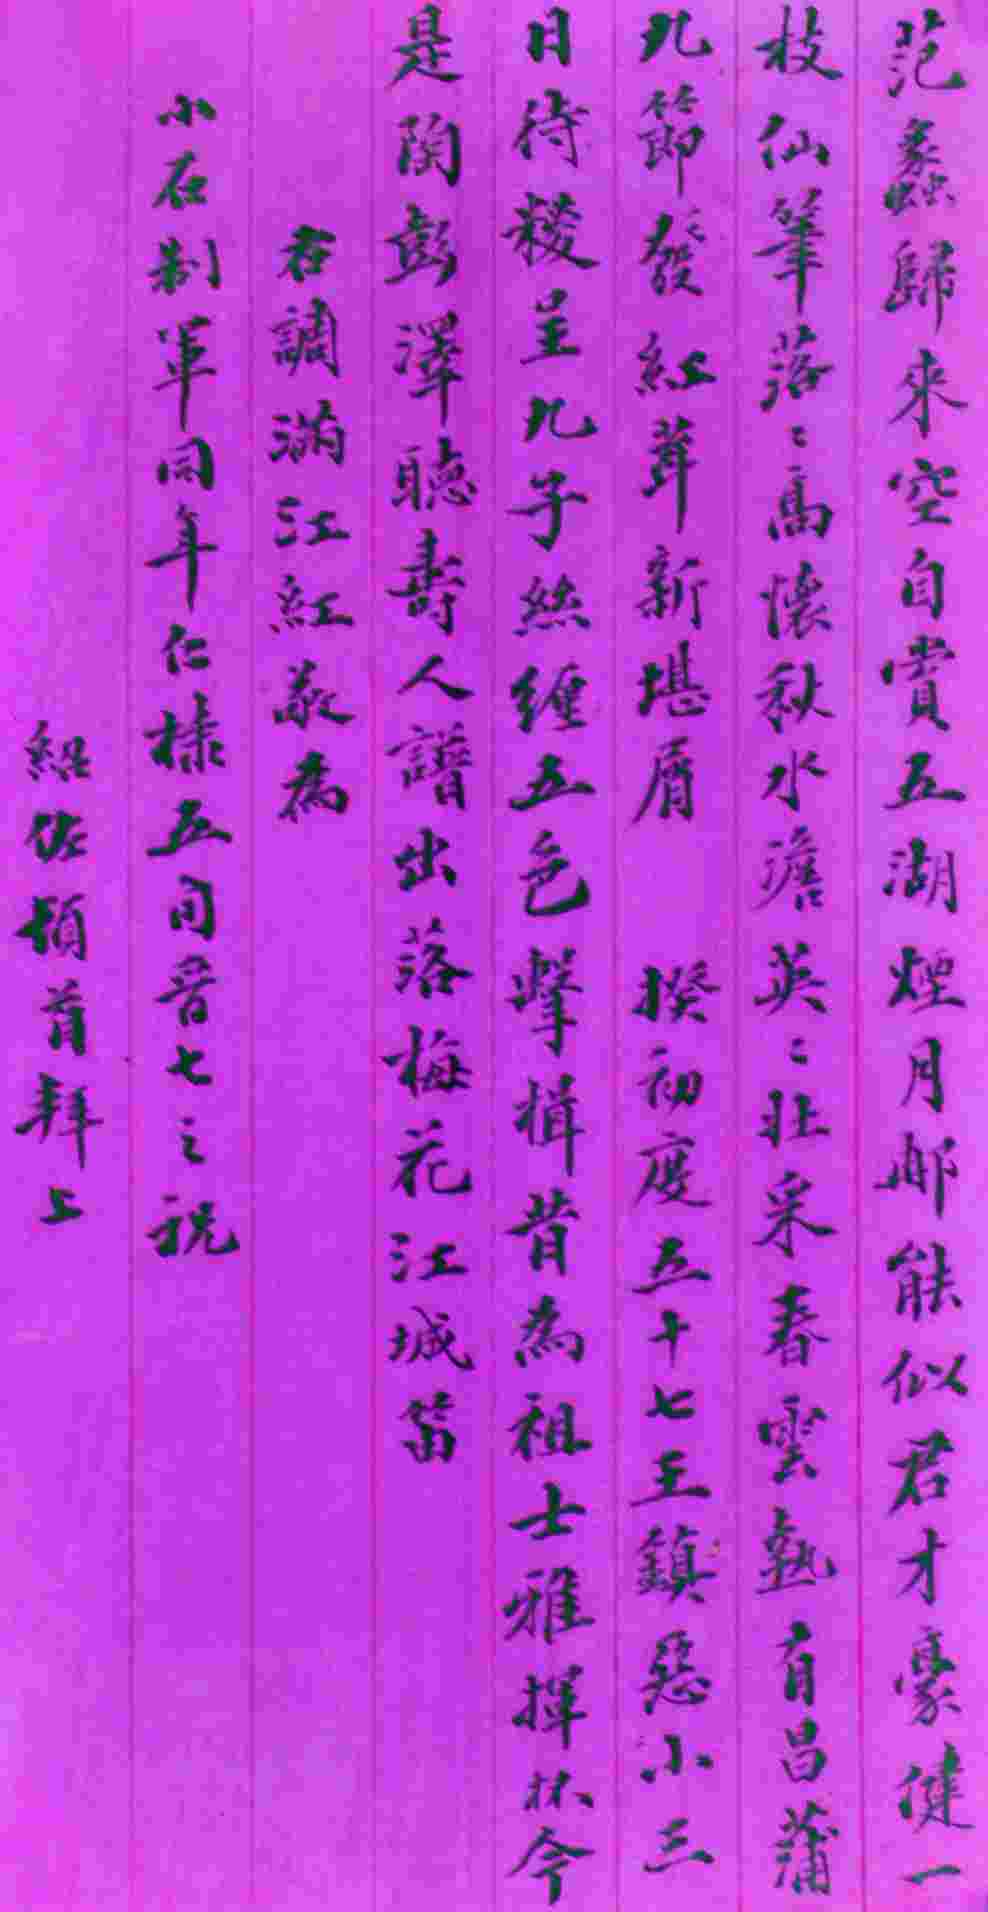 范蠡歸來空自賞五湖煙月那能似君才豪健一
枝仙筆落〻高懷秋水澹英〻壯采春雲熱有昌蒲
九節發紅茸新堪屑　揆初度五十七王鎮惡小三
日待稜呈九子絲纏五色擊楫昔為祖士雅揮杯今
是陶彭澤聽壽人譜出落梅花江城笛
右調滿江紅敬為
小石制軍同年仁棣五旬晉七之祝
紹佐頓首拜上